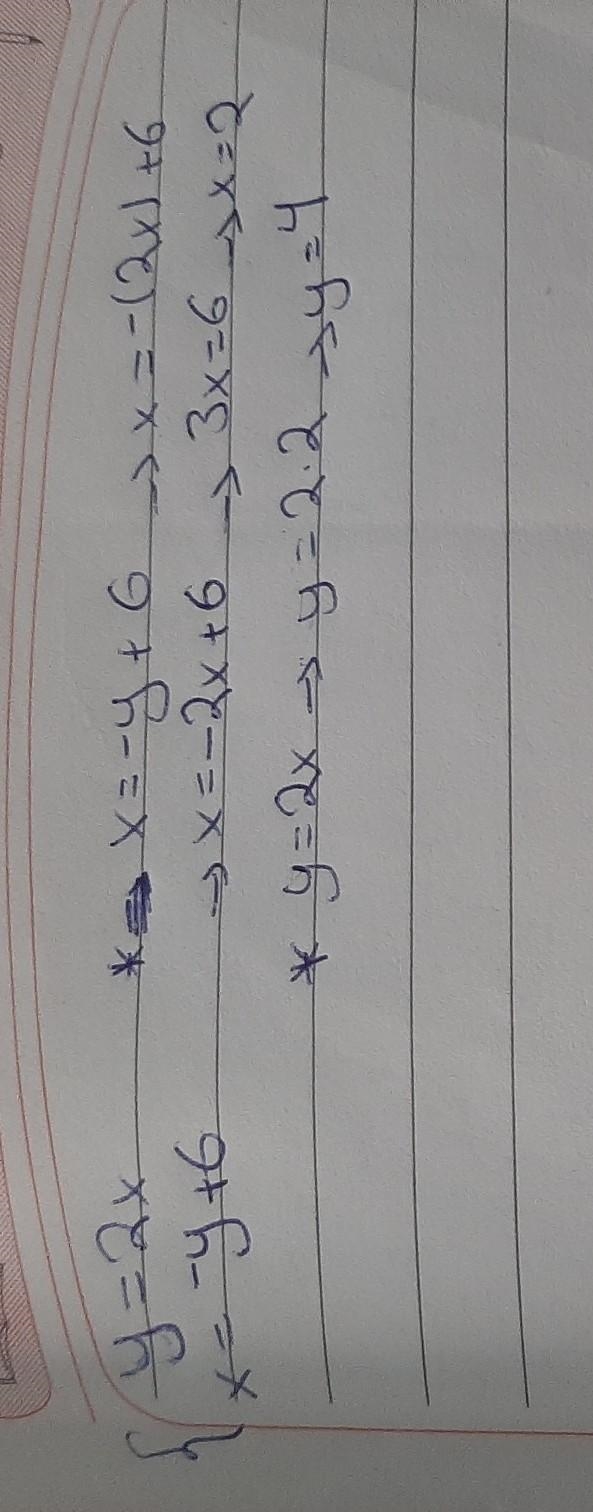 { y = 2x * x = -y + 6 → x = -(2x) + 6
x = -y + 6 → x = -2x + 6 → 3x = 6 → x = 2
* y = 2x → y = 2.2 → y = 4